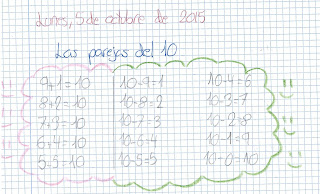 Lunes, 5 de octubre de 2015
Las parejas del 10
9+1=10 10-9=1 10-4=6
8+2=10 10-8=2 10-3=7
7+3=10 10-7=3 10-2=8
6+4=10 10-6=4 10-1=9
5+5=10 10-5=5 10-0=10